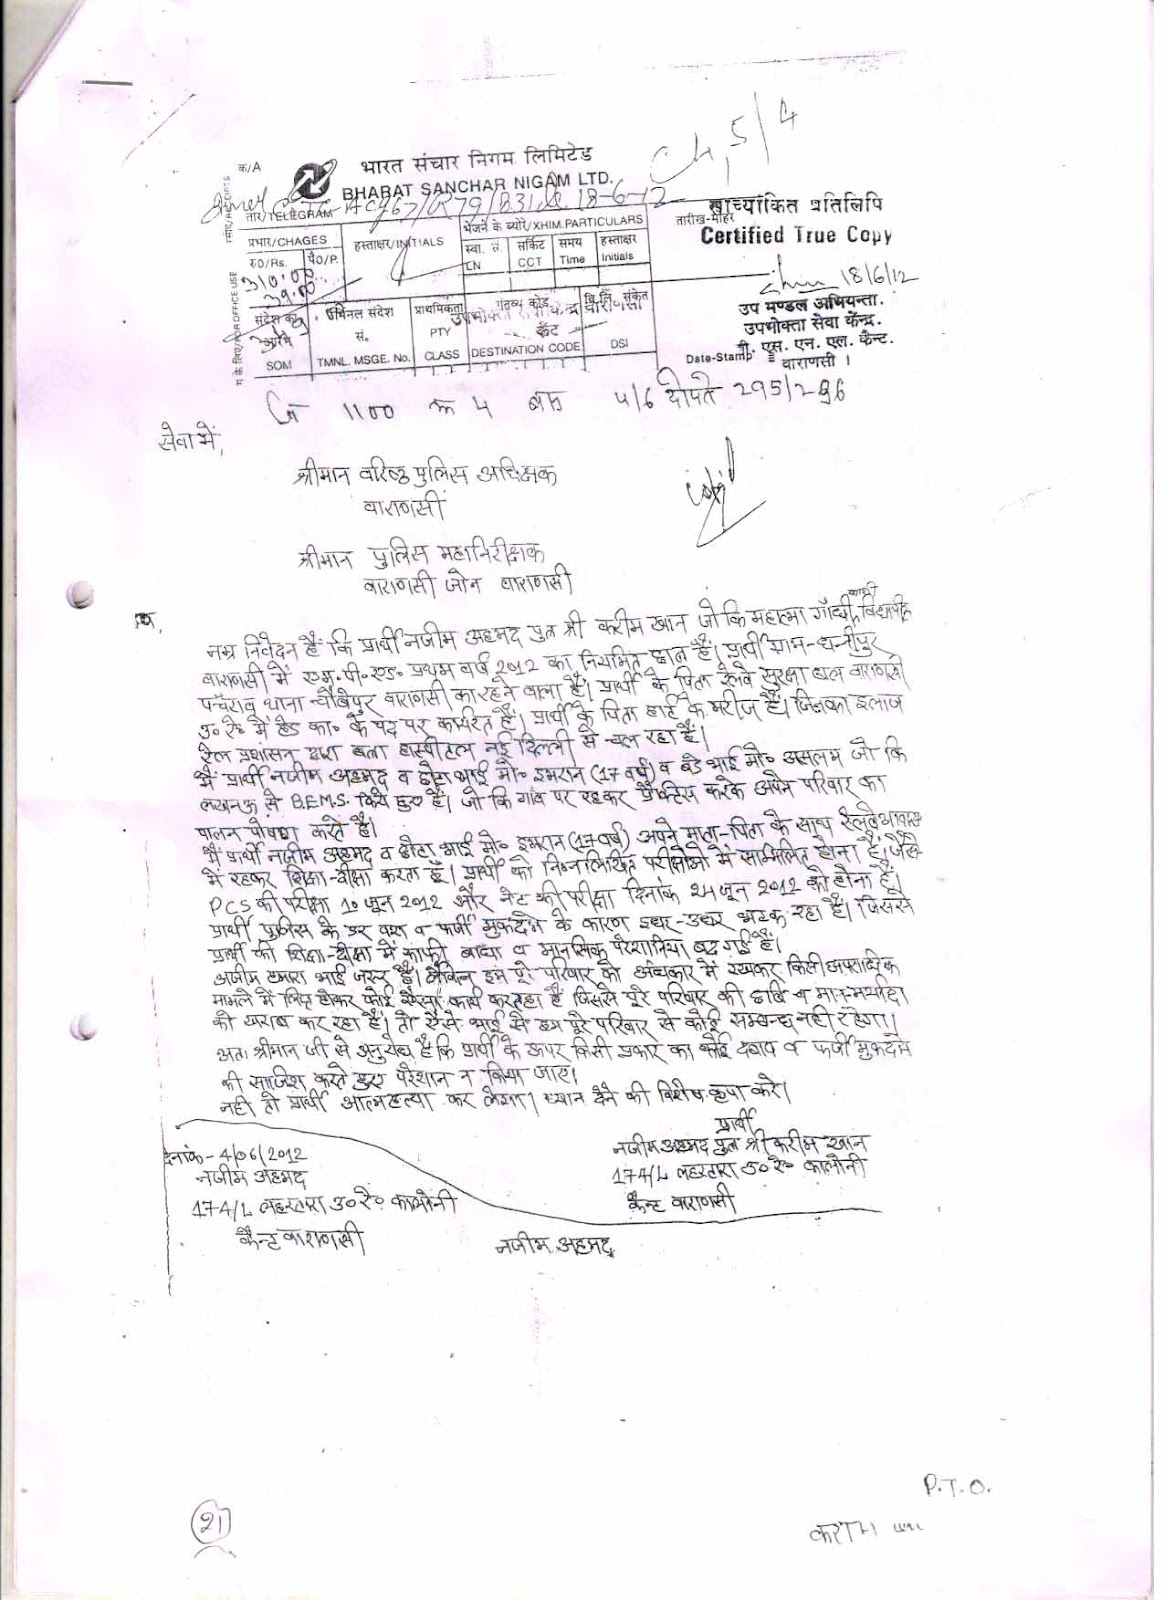 Ch, 5/4
क/A
भारत संचार निगम लिमिटेड
BHARAT SANCHAR NIGAM LTD.
तार/TELEGRAM
18-6-12
तारीख-मोहर
सत्याांकित प्रतिलिपि
Certified True Copy
18/6/12
उप मण्डल अभियन्ता.
उपभोक्ता सेवा केन्द्र.
बी. एस. एन. एल. कैन्ट.
Date-Stamp
वाराणसी ।
प्रभार/CHAGES
हस्ताक्षर/INITIALS
भेजने के ब्योरे/XHIM.PARTICULARS
रु0/Rs.
पै0/P.
स्वा. सं. LN
सर्किट CCT
समय Time
हस्ताक्षर Initials
310.00
39.00
संदेश का आरंभ SOM
टर्मिनल संदेश सं. TMNL. MSGE. No.
प्राथमिकता PTY CLASS
गंतव्य कोड DESTINATION CODE
वि. लि. संकेत DSI
1100 4 4/6 295/296
सेवा में,
श्रीमान वरिष्ठ पुलिस अधिक्षक
वाराणसी
श्रीमान पुलिस महानिरीक्षक
वाराणसी जोन वाराणसी
काशी
नम्र निवेदन है कि प्रार्थी नजीम अहमद पुत्र श्री करीम खान जो कि महात्मा गाँधी विद्यापीठ
वाराणसी में एम.पी.एड. प्रथम वर्ष 2012 का नियमित छात्र है। प्रार्थी ग्राम-धन्नीपुर
पचँराव थाना चौबेपुर वाराणसी का रहने वाला है। प्रार्थी के पिता रेलवे सुरक्षा बल वाराणसी
उ॰ रे॰ में हेड का॰ के पद पर कार्यरत हैं। प्रार्थी के पिता हार्ट के मरीज है। जिनका इलाज
रेल प्रशासन द्वारा बत्रा हास्पीटल नई दिल्ली से चल रहा है।
मैं प्रार्थी नजीम अहमद व छोटा भाई मो॰ इमरान (17 वर्ष) व बड़े भाई मो॰ असलम जो कि
लखनऊ से B.E.M.S. किये हुए है। जो कि गांव पर रहकर प्रैक्टिस करके अपने परिवार का
पालन पोषण करते है।
मैं प्रार्थी नजीम अहमद व छोटा भाई मो॰ इमरान (17 वर्ष) अपने माता-पिता के साथ रेलवे आवास
में रहकर शिक्षा-दीक्षा करता हूँ। प्रार्थी को निम्नलिखित परीक्षाओ में सम्मिलित होना है। जैसे
PCS की परीक्षा 10 जून 2012 और नेट की परीक्षा दिनांक 24 जून 2012 को होना है।
प्रार्थी पुलिस के डर वश व फर्जी मुकदमे के कारण इधर-उधर भटक रहा है। जिससे
प्रार्थी की शिक्षा-दीक्षा में काफी बाधा व मानसिक परेशानिया बढ़ गई है।
अजीम हमारा भाई जरूर है। लेकिन हम पूरे परिवार को अंधकार में रखकर किसी अपराधिक
मामले में लिप्त होकर कोई ऐसा कार्य कर रहा है जिससे पूरे परिवार की छवि व मान-मर्यादा
को खराब कर रहा है। तो ऐसे भाई से हम पूरे परिवार से कोई सम्बन्ध नही रहेगा।
अतः श्रीमान जी से अनुरोध है कि प्रार्थी के ऊपर किसी प्रकार का कोई दबाव व फर्जी मुकदमे
की साजिश करते हुए परेशान न किया जाए।
नही तो प्रार्थी आत्महत्या कर लेगा। ध्यान देने की विशेष कृपा करे।
प्रार्थी
नजीम अहमद पुत्र श्री करीम खान
174/L लहरतारा उ॰ रे॰ कालोनी
कैन्ट वाराणसी
दिनांक - 4/06/2012
नजीम अहमद
174/L लहरतारा उ॰ रे॰ कालोनी
कैन्ट वाराणसी
नजीम अहमद
P.T.O.
21